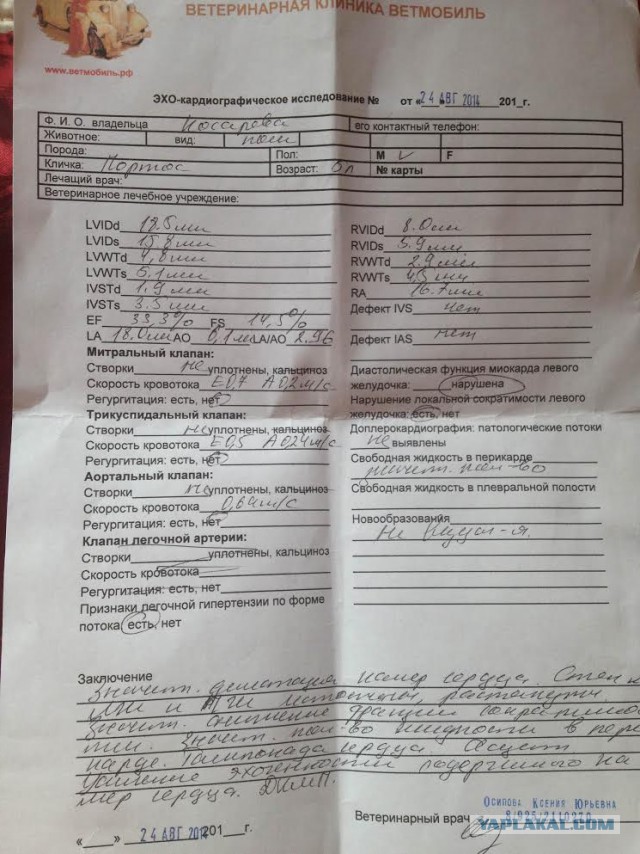 ВЕТЕРИНАРНАЯ КЛИНИКА ВЕТМОБИЛЬ
www.ветмобиль.рф
ЭХО-кардиографическое исследование № от «24 АВГ 2014 201_г.
Ф. И. О. владельца Косарева его контактный телефон:
Животное: вид:
Порода: Пол: M V F
Кличка: Портос Возраст: № карты
Лечащий врач:
Ветеринарное лечебное учреждение:
LVIDd 17.5мм RVIDd 8.0мм
LVIDs 15.8мм RVIDs 5.9мм
LVWTd 4,8мм RVWTd 2.9мм
LVWTs 5.1мм RVWTs
IVSTd 1.9мм RA 16.7мм
IVSTs 3.5мм Дефект IVS нет
EF 33,3% FS 14,5%
LA 18.0мм AO LA/AO 2.96 Дефект IAS нет
Митральный клапан:
Створки не уплотнены, кальциноз
Скорость кровотока E0,7 A0,2м/с
Регургитация: есть, нет
Трикуспидальный клапан:
Створки не уплотнены, кальциноз
Скорость кровотока E0,5 A0,24м/с
Регургитация: есть, нет
Аортальный клапан:
Створки не уплотнены, кальциноз
Скорость кровотока 0,64м/с
Регургитация: есть, нет
Клапан легочной артерии:
Створки уплотнены, кальциноз
Скорость кровотока
Регургитация: есть, нет
Признаки легочной гипертензии по форме
потока есть, нет
Диастолическая функция миокарда левого
желудочка: нарушена
Нарушение локальной сократимости левого
желудочка: есть, нет
Доплерокардиография: патологические потоки
не выявлены
Свободная жидкость в перикарде
значит. кол-во
Свободная жидкость в плевральной полости
Новообразования
не
Заключение
Значит. дилатация камер сердца. Стенки
и истончены, растянуты.
Значит. снижение фракции
Значит. кол-во жидкости в
Тампонада сердца. Асцит
Усиление эхогенности содержимого
сердца. ДКМП.
Ветеринарный врач ОСИПОВА КСЕНИЯ ЮРЬЕВНА
« » 24 АВГ 2014 201_г.
YAPLAKAL.COM